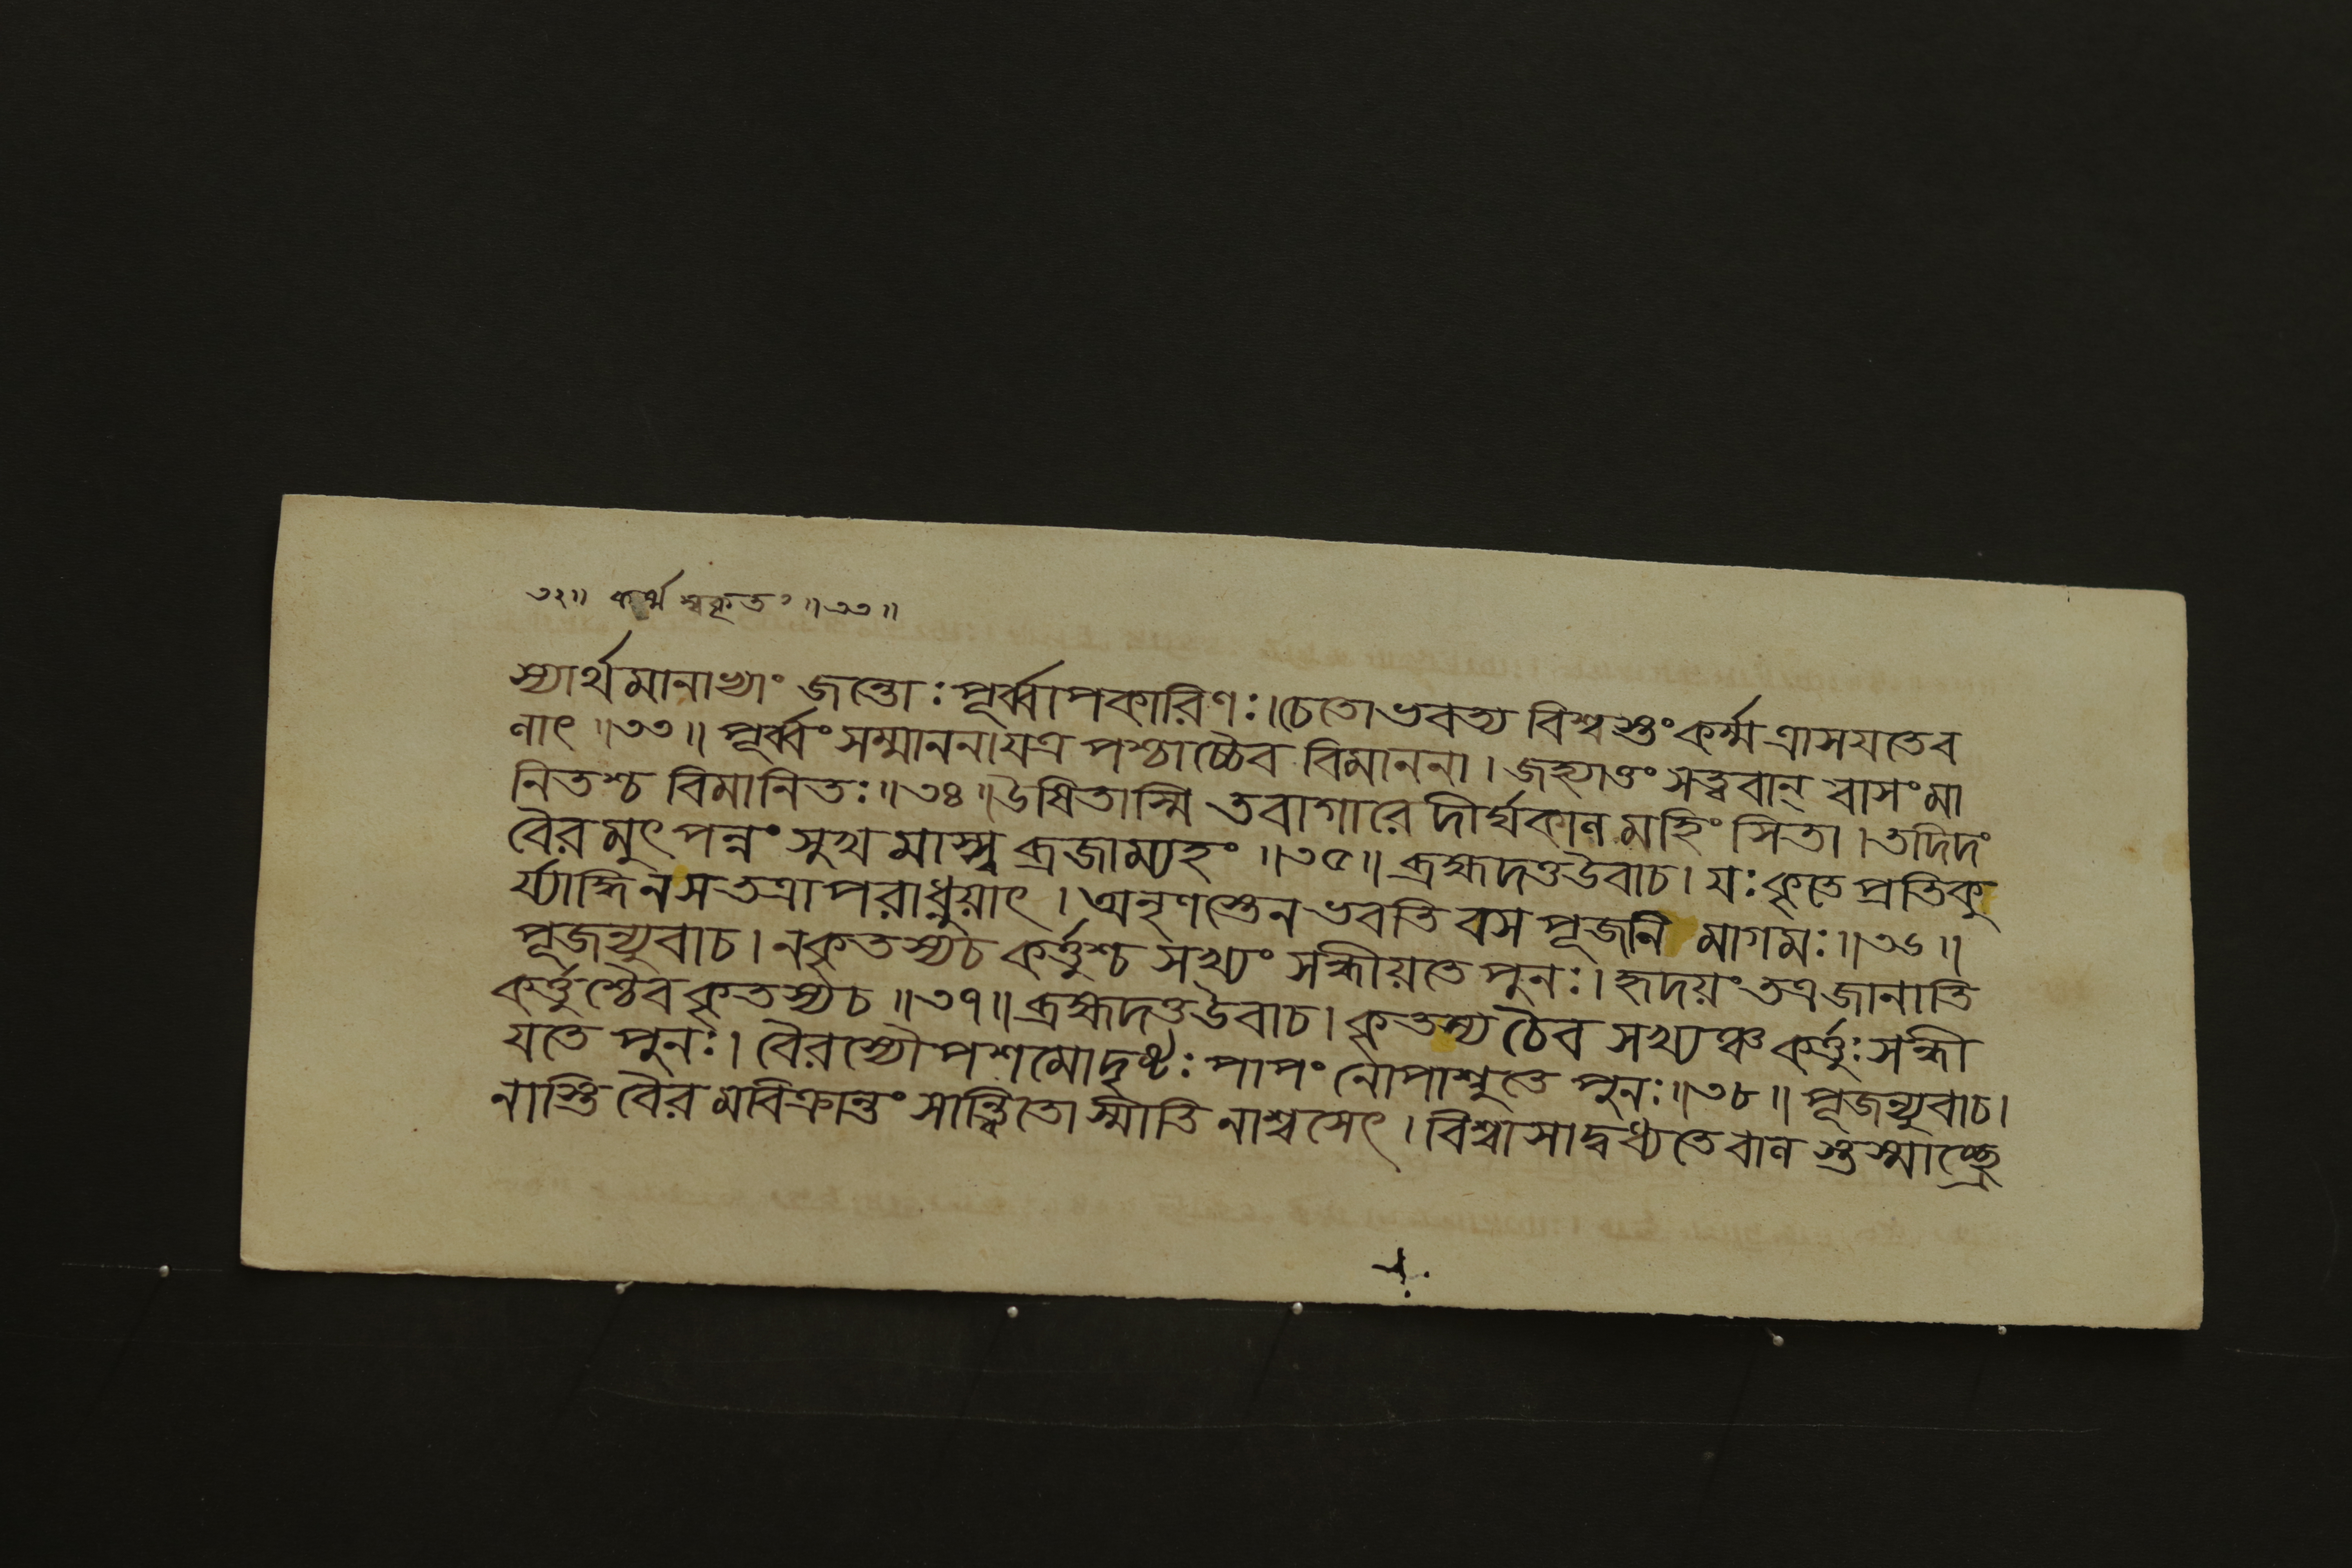 ৩২॥ কর্ম্ম স্বকৃতং ॥৩৩॥
স্যার্থমানাখ্যাং জন্তোঃপূর্ব্বাপকারিণঃ।চেতোভবত্য বিশ্বস্তংকর্ম্মত্রাসযতেব
নাৎ॥৩৩॥ পূর্ব্বংসম্মাননাযত্র পশ্চাচ্চৈব বিমাননা। জহ্যাত্তং সত্ত্ববান্ বাসংমা
নিতশ্চ বিমানিতঃ॥৩৪॥উষিতাস্মি তবাগারে দীর্ঘকাল মহিংসিতা।তদিদং
বৈরমুৎপন্নং সুখমাস্স্ব ব্রজাম্যহং॥৩৫॥ ব্রহ্মদত্তউবাচ। যঃকৃতে প্রতিকু
র্য্যাদ্ধিনসতত্রাপরাধ্নুয়াৎ। অনৃণস্তেনভবতি বসপূজনি মাগমঃ॥৩৬॥
পূজন্যুবাচ। নকৃতস্যচ কর্ত্তুশ্চ সখ্যং সন্ধীয়তেপুনঃ।হৃদয়ংতত্রজানাতি
কর্ত্তুশ্চৈবকৃতস্যচ॥৩৭॥ব্রহ্মদত্তউবাচ। কৃতস্য চৈব সখ্যঞ্চ কর্ত্তুঃসন্ধী
যতেপুনঃ। বৈরস্যোপশমোদৃষ্টঃ পাপং নোপাশ্নুতে পুনঃ॥৩৮॥ পূজন্যুবাচ।
নাস্তিবৈরমবিক্রান্তং সান্ত্বিতোস্মীতি নাশ্বসেৎ। বিশ্বাসাদ্বধ্যতেবাল স্তস্মাচ্ছ্রে